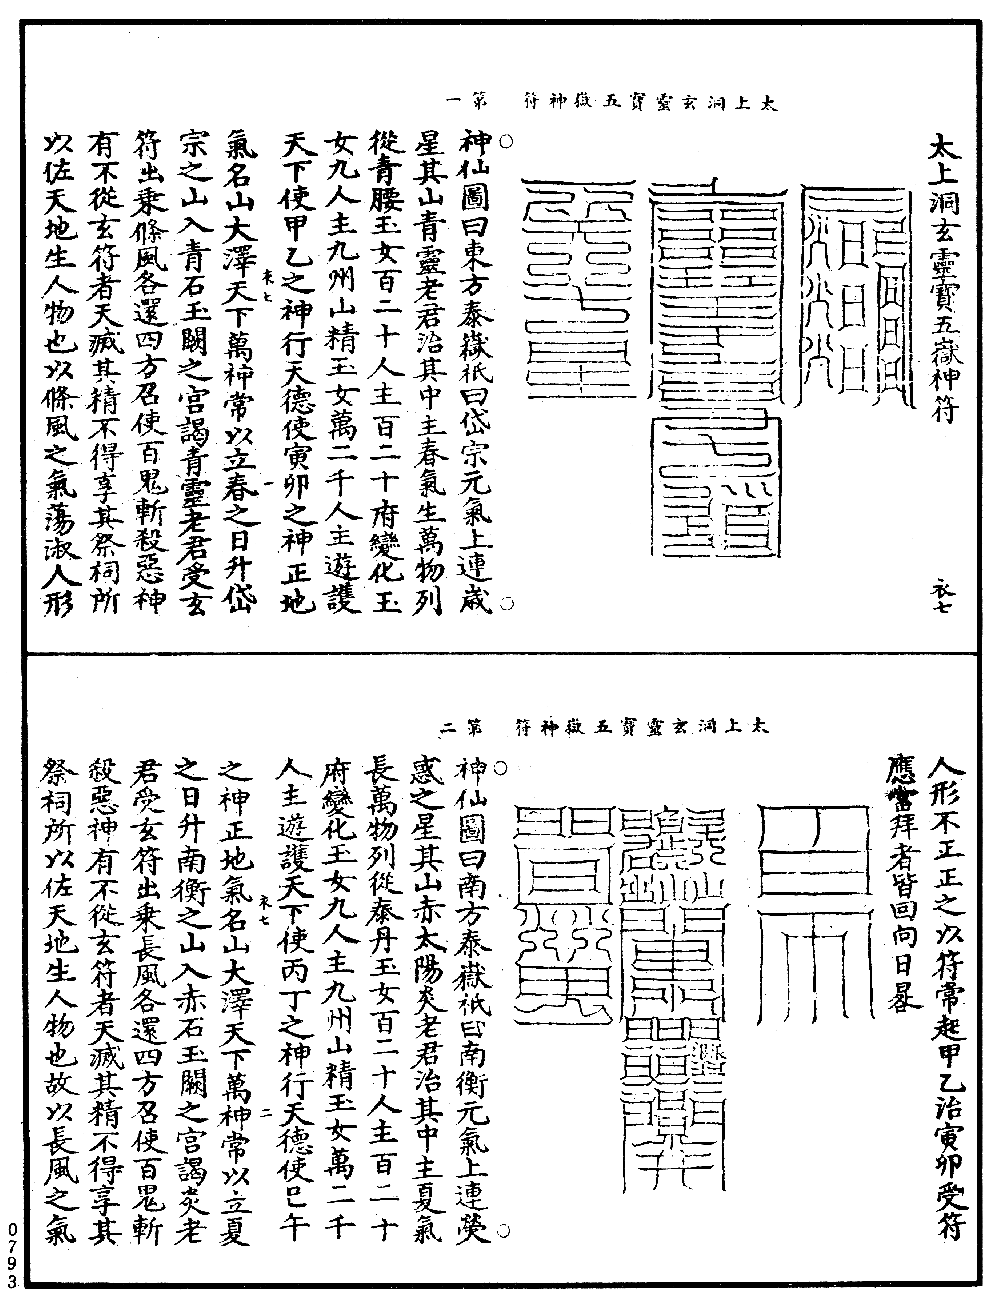 太上洞玄靈寶五嶽神符
衣七
太上洞玄靈寶五嶽神符　第一
神仙圖曰東方泰嶽祇曰岱宗元氣上連歲
星其山青靈老君治其中主春氣生萬物列
從青腰玉女百二十人主百二十府變化玉
女九人主九州山精玉女萬二千人主遊護
天下使甲乙之神行天德使寅卯之神正地
衣七　一
氣名山大澤天下萬神常以立春之日升岱
宗之山入青石玉闕之宮謁青靈老君受玄
符出乘條風各還四方召使百鬼斬殺惡神
有不從玄符者天滅其精不得享其祭祠所
以佐天地生人物也以條風之氣蕩淑人形
人形不正正之以符常起甲乙治寅卯受符
應當拜者皆回向日晷
太上洞玄靈寶五嶽神符　第二
神仙圖曰南方泰嶽祇曰南衡元氣上連熒
惑之星其山赤太陽炎老君治其中主夏氣
長萬物列從泰丹玉女百二十人主百二十
府變化玉女九人主九州山精玉女萬二千
人主遊護天下使丙丁之神行天德使巳午
衣七　二
之神正地氣名山大澤天下萬神常以立夏
之日升南衡之山入赤石玉闕之宮謁炎老
君受玄符出乘長風各還四方召使百鬼斬
殺惡神有不從玄符者天滅其精不得享其
祭祠所以佐天地生人物也故以長風之氣
0793